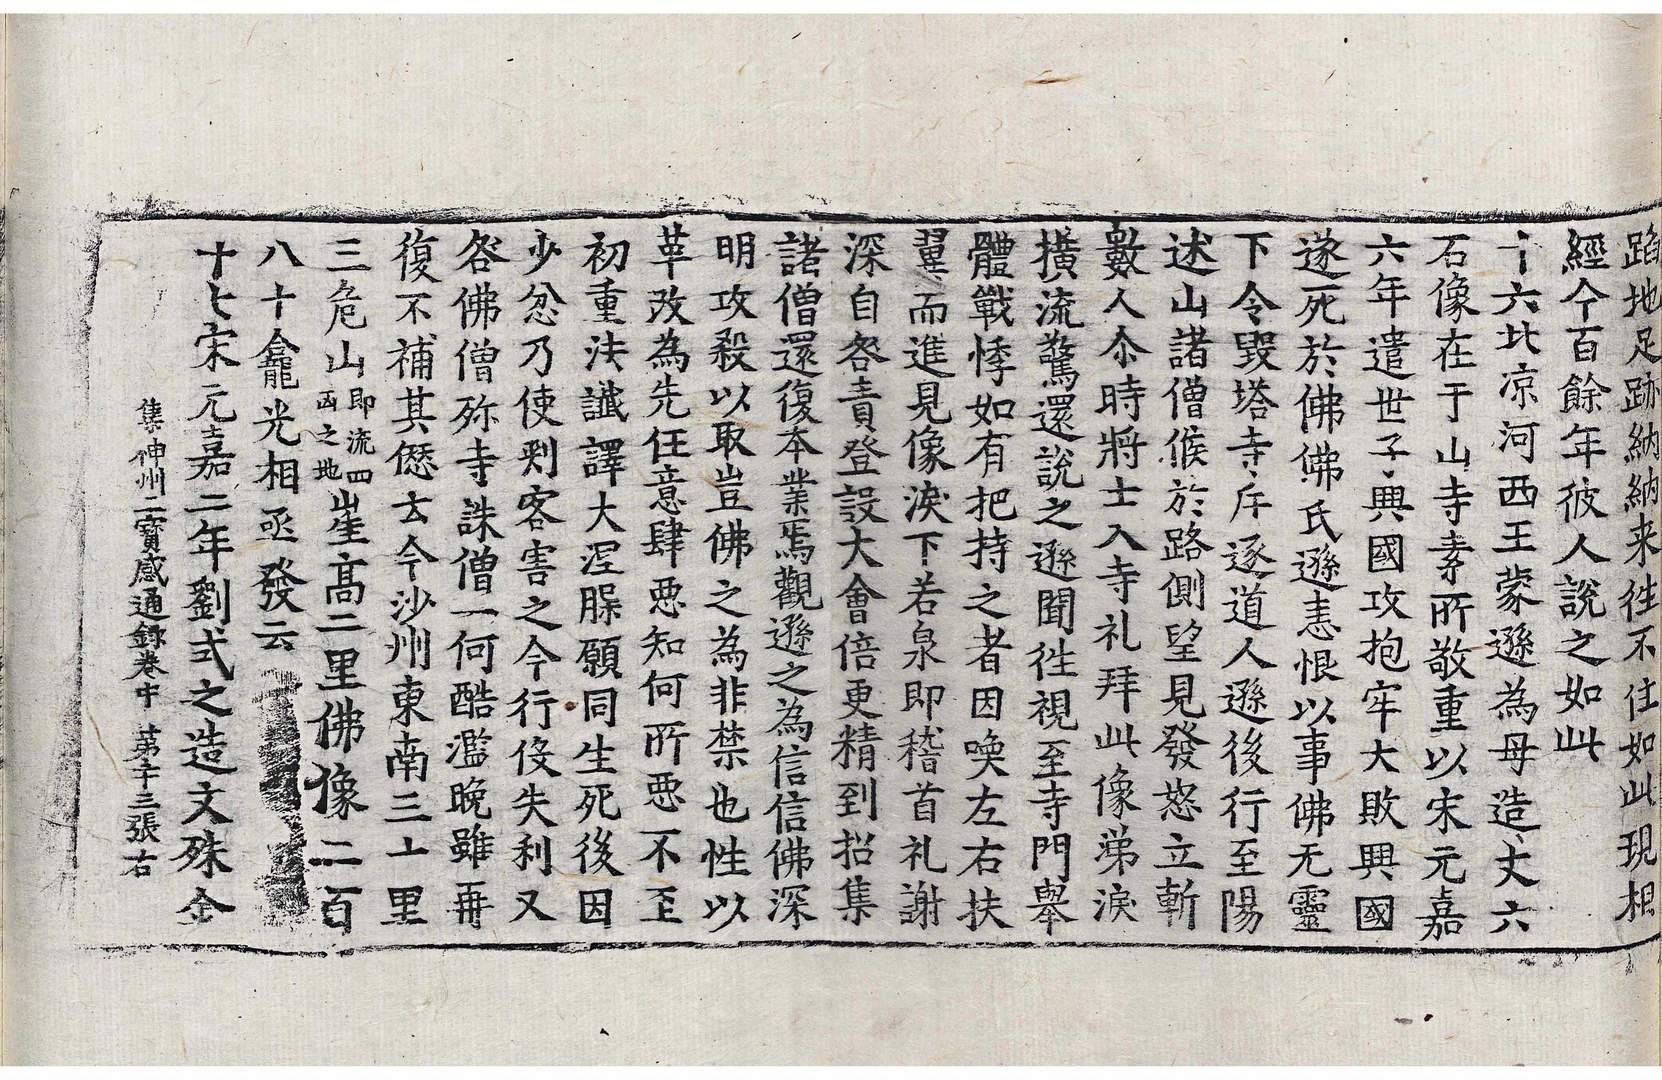 蹈地足跡納納来往不住如此現相
經今百餘年彼人說之如此
十六北凉河西王蒙遜為母造丈六
石像在于山寺素所敬重以宋元嘉
六年遣世子興國攻抱罕大敗興國
遂死於佛佛氏遜恚恨以事佛无靈
下令毀塔寺斥逐道人遜後行至陽
述山諸僧候於路側望見發怒立斬
數人尒時將士入寺礼拜此像涕淚
橫流驚還說之遜聞徃視至寺門舉
體戰悸如有把持之者因喚左右扶
翼而進見像淚下若泉即稽首礼謝
深自咎責登設大會倍更精到招集
諸僧還復本業焉觀遜之為信信佛深
明攻殺以取豈佛之為非禁也性以
革改為先任意肆惡知何所惡不至
初重法讖譯大涅槃願同生死後因
少忿乃使刺客害之今行役失利又
咎佛僧殄寺誅僧一何酷濫晚雖再
復不補其愆云今沙州東南三十里
三危山即流四凶之地崖高二里佛像二百
八十龕光相亟發云
十七宋元嘉二年劉式之造文殊金
集神州三寶感通錄卷中 第十三張 右